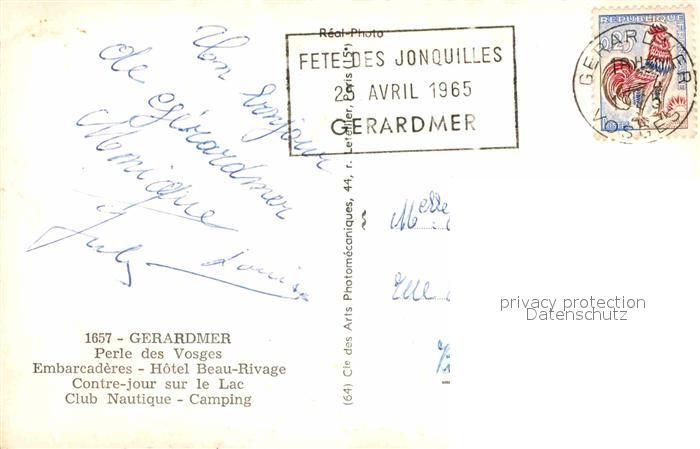 Un bonjour
de Gérardmer
Monique
Louise
1657 - GERARDMER
Perle des Vosges
Embarcadères - Hôtel Beau-Rivage
Contre-jour sur le Lac
Club Nautique - Camping
Réal-Photo
(64) Cie des Arts Photomécaniques, 44, r. Letellier, Paris (15e)
FETE DES JONQUILLES
25 AVRIL 1965
GERARDMER
REPUBLIQUE
0,25
GERARDMER
VOSGES
Melle
rue
privacy protection
Datenschutz